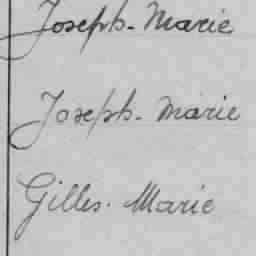 Joseph-Marie
Joseph-Marie
Gilles-Marie